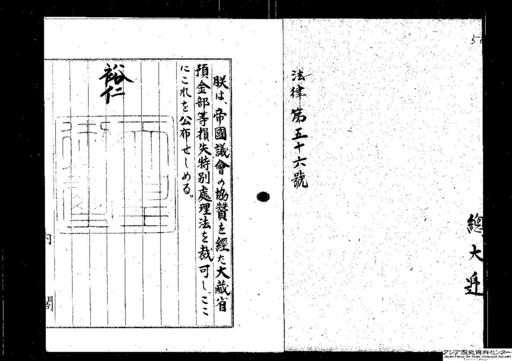 法律第五十六號
朕は、帝國議會の協賛を經た大藏省
預金部等損失特別處理法を裁可し、ここ
にこれを公布せしめる。
裕仁
內閣
總大
アジア歴史資料センター